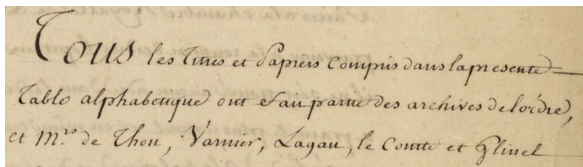 Tous les titres et papiers compris dans la presente
Table alphabetique ont fait partie des archives de l'ordre,
et M.rs de Thou, Varnier, Lagau, le Comte et